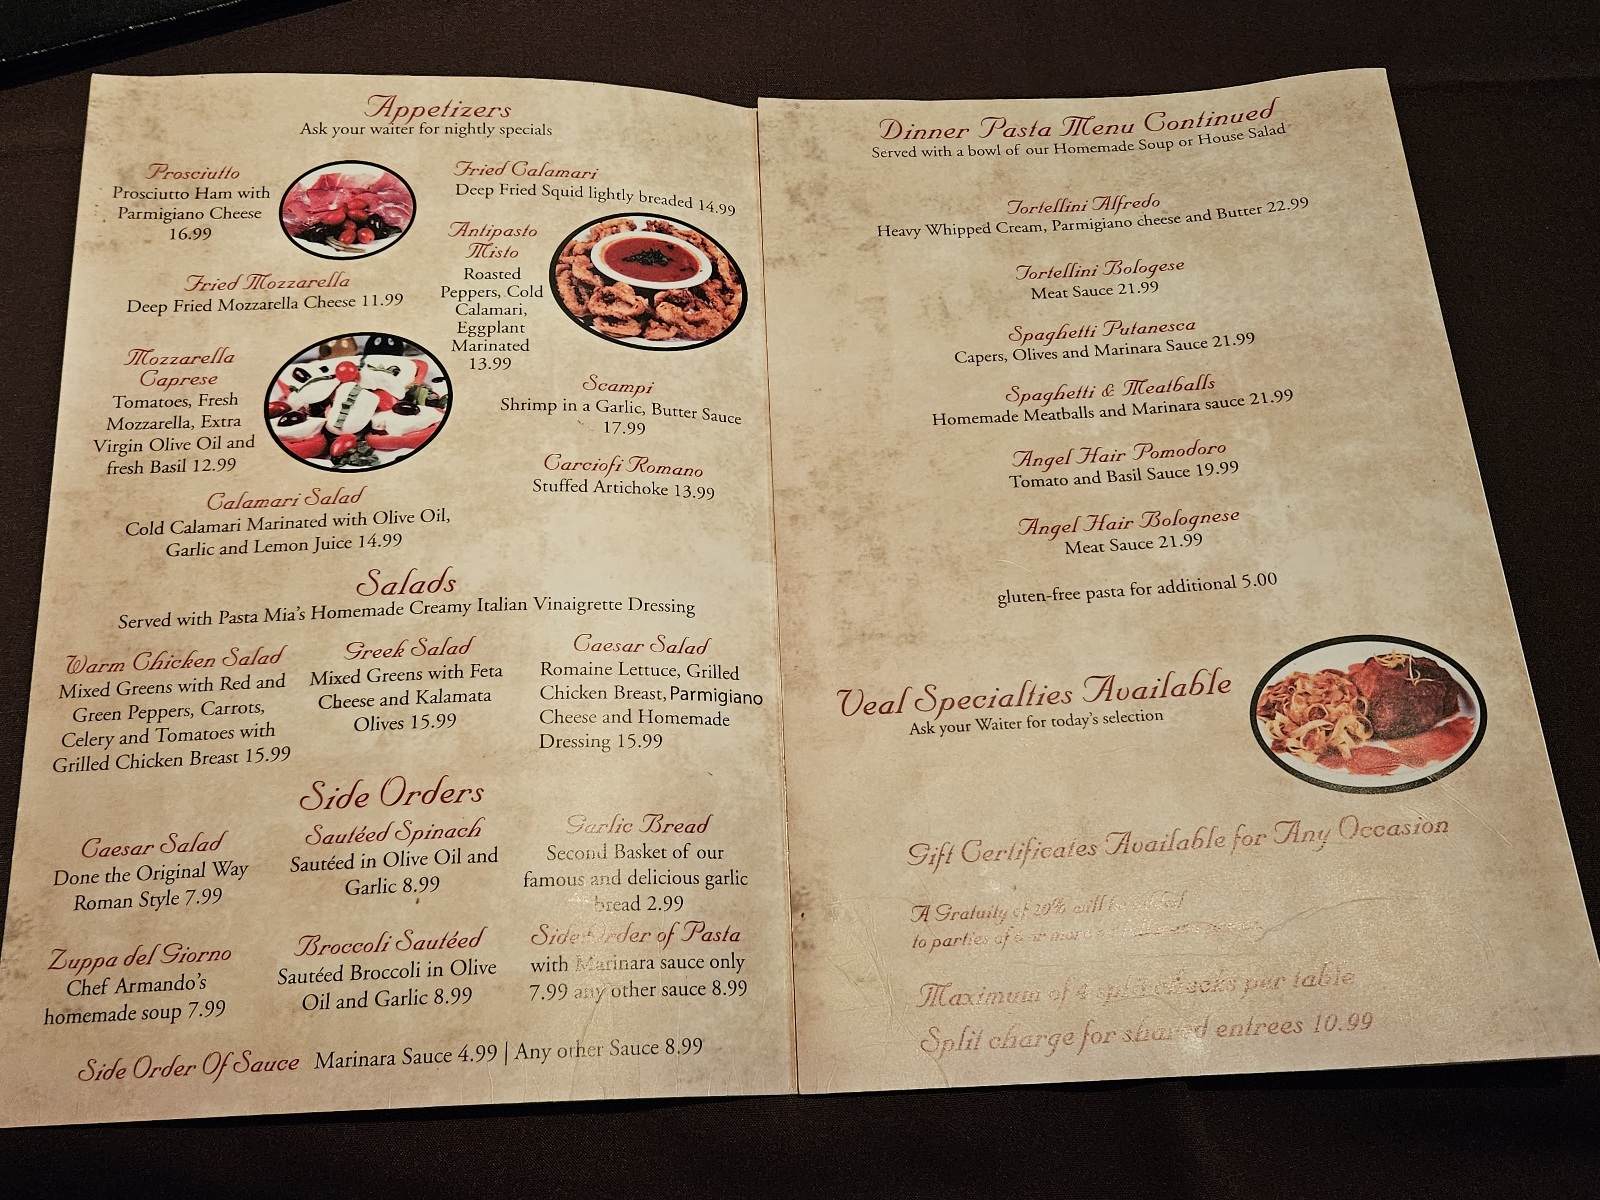 Appetizers
Ask your waiter for nightly specials
Prosciutto
Prosciutto Ham with
Parmigiano Cheese
16.99
Fried Mozzarella
Deep Fried Mozzarella Cheese 11.99
Mozzarella
Caprese
Tomatoes, Fresh
Mozzarella, Extra
Virgin Olive Oil and
fresh Basil 12.99
Calamari Salad
Cold Calamari Marinated with Olive Oil,
Garlic and Lemon Juice 14.99
Fried Calamari
Deep Fried Squid lightly breaded 14.99
Antipasto
Misto
Roasted
Peppers, Cold
Calamari,
Eggplant
Marinated
13.99
Scampi
Shrimp in a Garlic, Butter Sauce
17.99
Carciofi Romano
Stuffed Artichoke 13.99
Salads
Served with Pasta Mia's Homemade Creamy Italian Vinaigrette Dressing
Warm Chicken Salad
Mixed Greens with Red and
Green Peppers, Carrots,
Celery and Tomatoes with
Grilled Chicken Breast 15.99
Greek Salad
Mixed Greens with Feta
Cheese and Kalamata
Olives 15.99
Caesar Salad
Romaine Lettuce, Grilled
Chicken Breast, Parmigiano
Cheese and Homemade
Dressing 15.99
Side Orders
Caesar Salad
Done the Original Way
Roman Style 7.99
Sautéed Spinach
Sautéed in Olive Oil and
Garlic 8.99
Garlic Bread
Second Basket of our
famous and delicious garlic
bread 2.99
Zuppa del Giorno
Chef Armando's
homemade soup 7.99
Broccoli Sautéed
Sautéed Broccoli in Olive
Oil and Garlic 8.99
Side Order of Pasta
with Marinara sauce only
7.99 any other sauce 8.99
Side Order Of Sauce Marinara Sauce 4.99 | Any other Sauce 8.99
Dinner Pasta Menu Continued
Served with a bowl of our Homemade Soup or House Salad
Tortellini Alfredo
Heavy Whipped Cream, Parmigiano cheese and Butter 22.99
Tortellini Bologese
Meat Sauce 21.99
Spaghetti Putanesca
Capers, Olives and Marinara Sauce 21.99
Spaghetti & Meatballs
Homemade Meatballs and Marinara sauce 21.99
Angel Hair Pomodoro
Tomato and Basil Sauce 19.99
Angel Hair Bolognese
Meat Sauce 21.99
gluten-free pasta for additional 5.00
Veal Specialties Available
Ask your Waiter for today's selection
Gift Certificates Available for Any Occasion
A Gratuity of 20% will be added
to parties of
Maximum of 4 split checks per table
Split charge for shared entrees 10.99